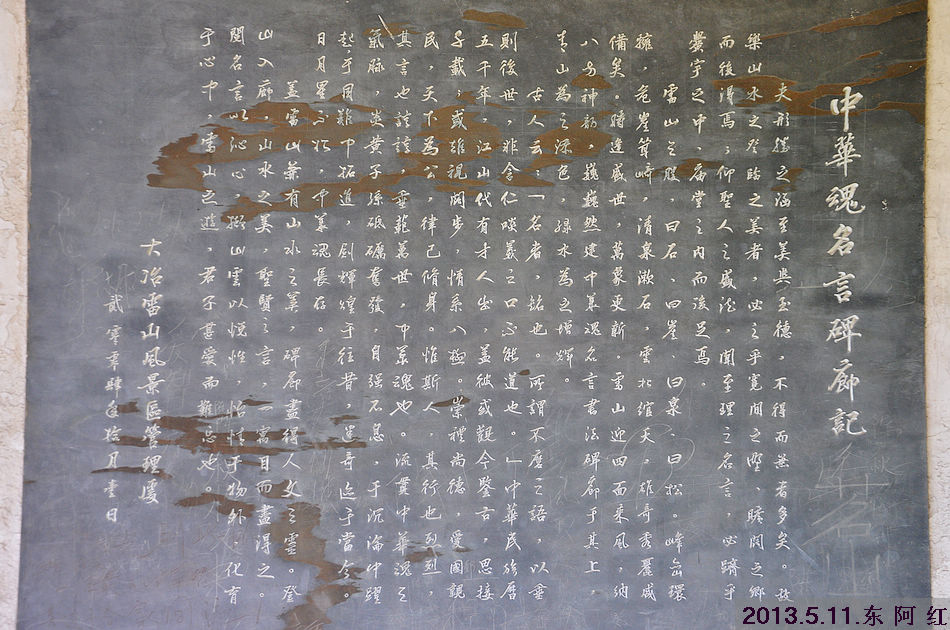 中華魂名言碑廊記
夫形勝之涵至美與至德，不得而兼者多矣。故
樂山水之奇勝之美者，必之乎寬閒之野、曠闊之鄉
而後得焉；仰聖人之盛德，聞至理之名言，必躋乎
黌宇之中、廟堂之内而後足焉。
雷山之股，曰石、曰崖、曰泉、曰松。峰巒環
擁，危崖聳峙，清泉漱石，雲松綰天，雄奇秀麗咸
備矣。時逢盛世，萬象更新。雷山迎四面來風，納
八方神韵，巍巍然建中華魂名言書法碑廊于其上，
青山為之深色，綠水為之增輝。
古人云：「名者，銘也。所謂不磨之語，以垂
則後世，非含仁啖義之口不能道也。」中華民族歷
五千年，江山代有才人出，蓋彼或觀今鑒古，思接
千載；或雄視闊步，情系八極。崇禮尚德，愛國親
民，天下為公，律己脩身。惟斯人，其行也烈烈，
其言也諄諄，垂範萬世，中華魂也。流貫中華魂之
氣脉，炎黄子孫砥礪奮發，自强不息，于沉淪中躍
起，于困難中拓進，創輝煌于往昔，造奇迹于當今。
日月星不朽，中華魂長存。
蓋雷山兼有山水之美，碑廊盡得人文之靈。登
山入廊，山水之美，聖賢之言，一寓目而盡得之。
閲名言以沁心，撫山雲以悦性，怡情于物外，化育
于心中，雷山之遊，君子甚愛而難忘也。
大冶雷山風景區管理處
貳零零肆年拾月壹日
2013.5.11.东阿红